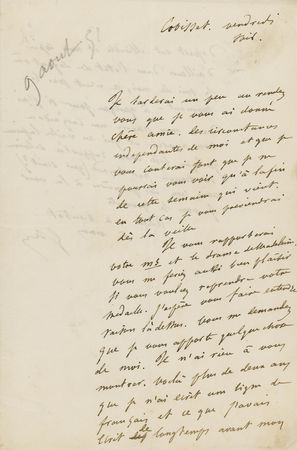 9 aout
vendredi
Soir.
Je tarderai un peu au rendez
vous que je vous ai donné
chère amie. Des circonstances
indépendantes de moi et que je
vous conterai font que je ne
pourrais vous voir qu'à la fin
de cette semaine qui vient.
en tout cas je vous préviendrai
dès la veille
Je vous rapporterai
votre ms et le drame de
vous me ferez aussi bien plaisir
si vous voulez reprendre votre
médaille. J'espère vous faire entendre
raison là dessus. Vous me demandez
que je vous apporte quelque chose
de moi. Je n'ai rien à vous
montrer. Voilà plus de deux ans
que je n'ai écrit une ligne de
français et ce que j'avais
écrit longtemps avant mon